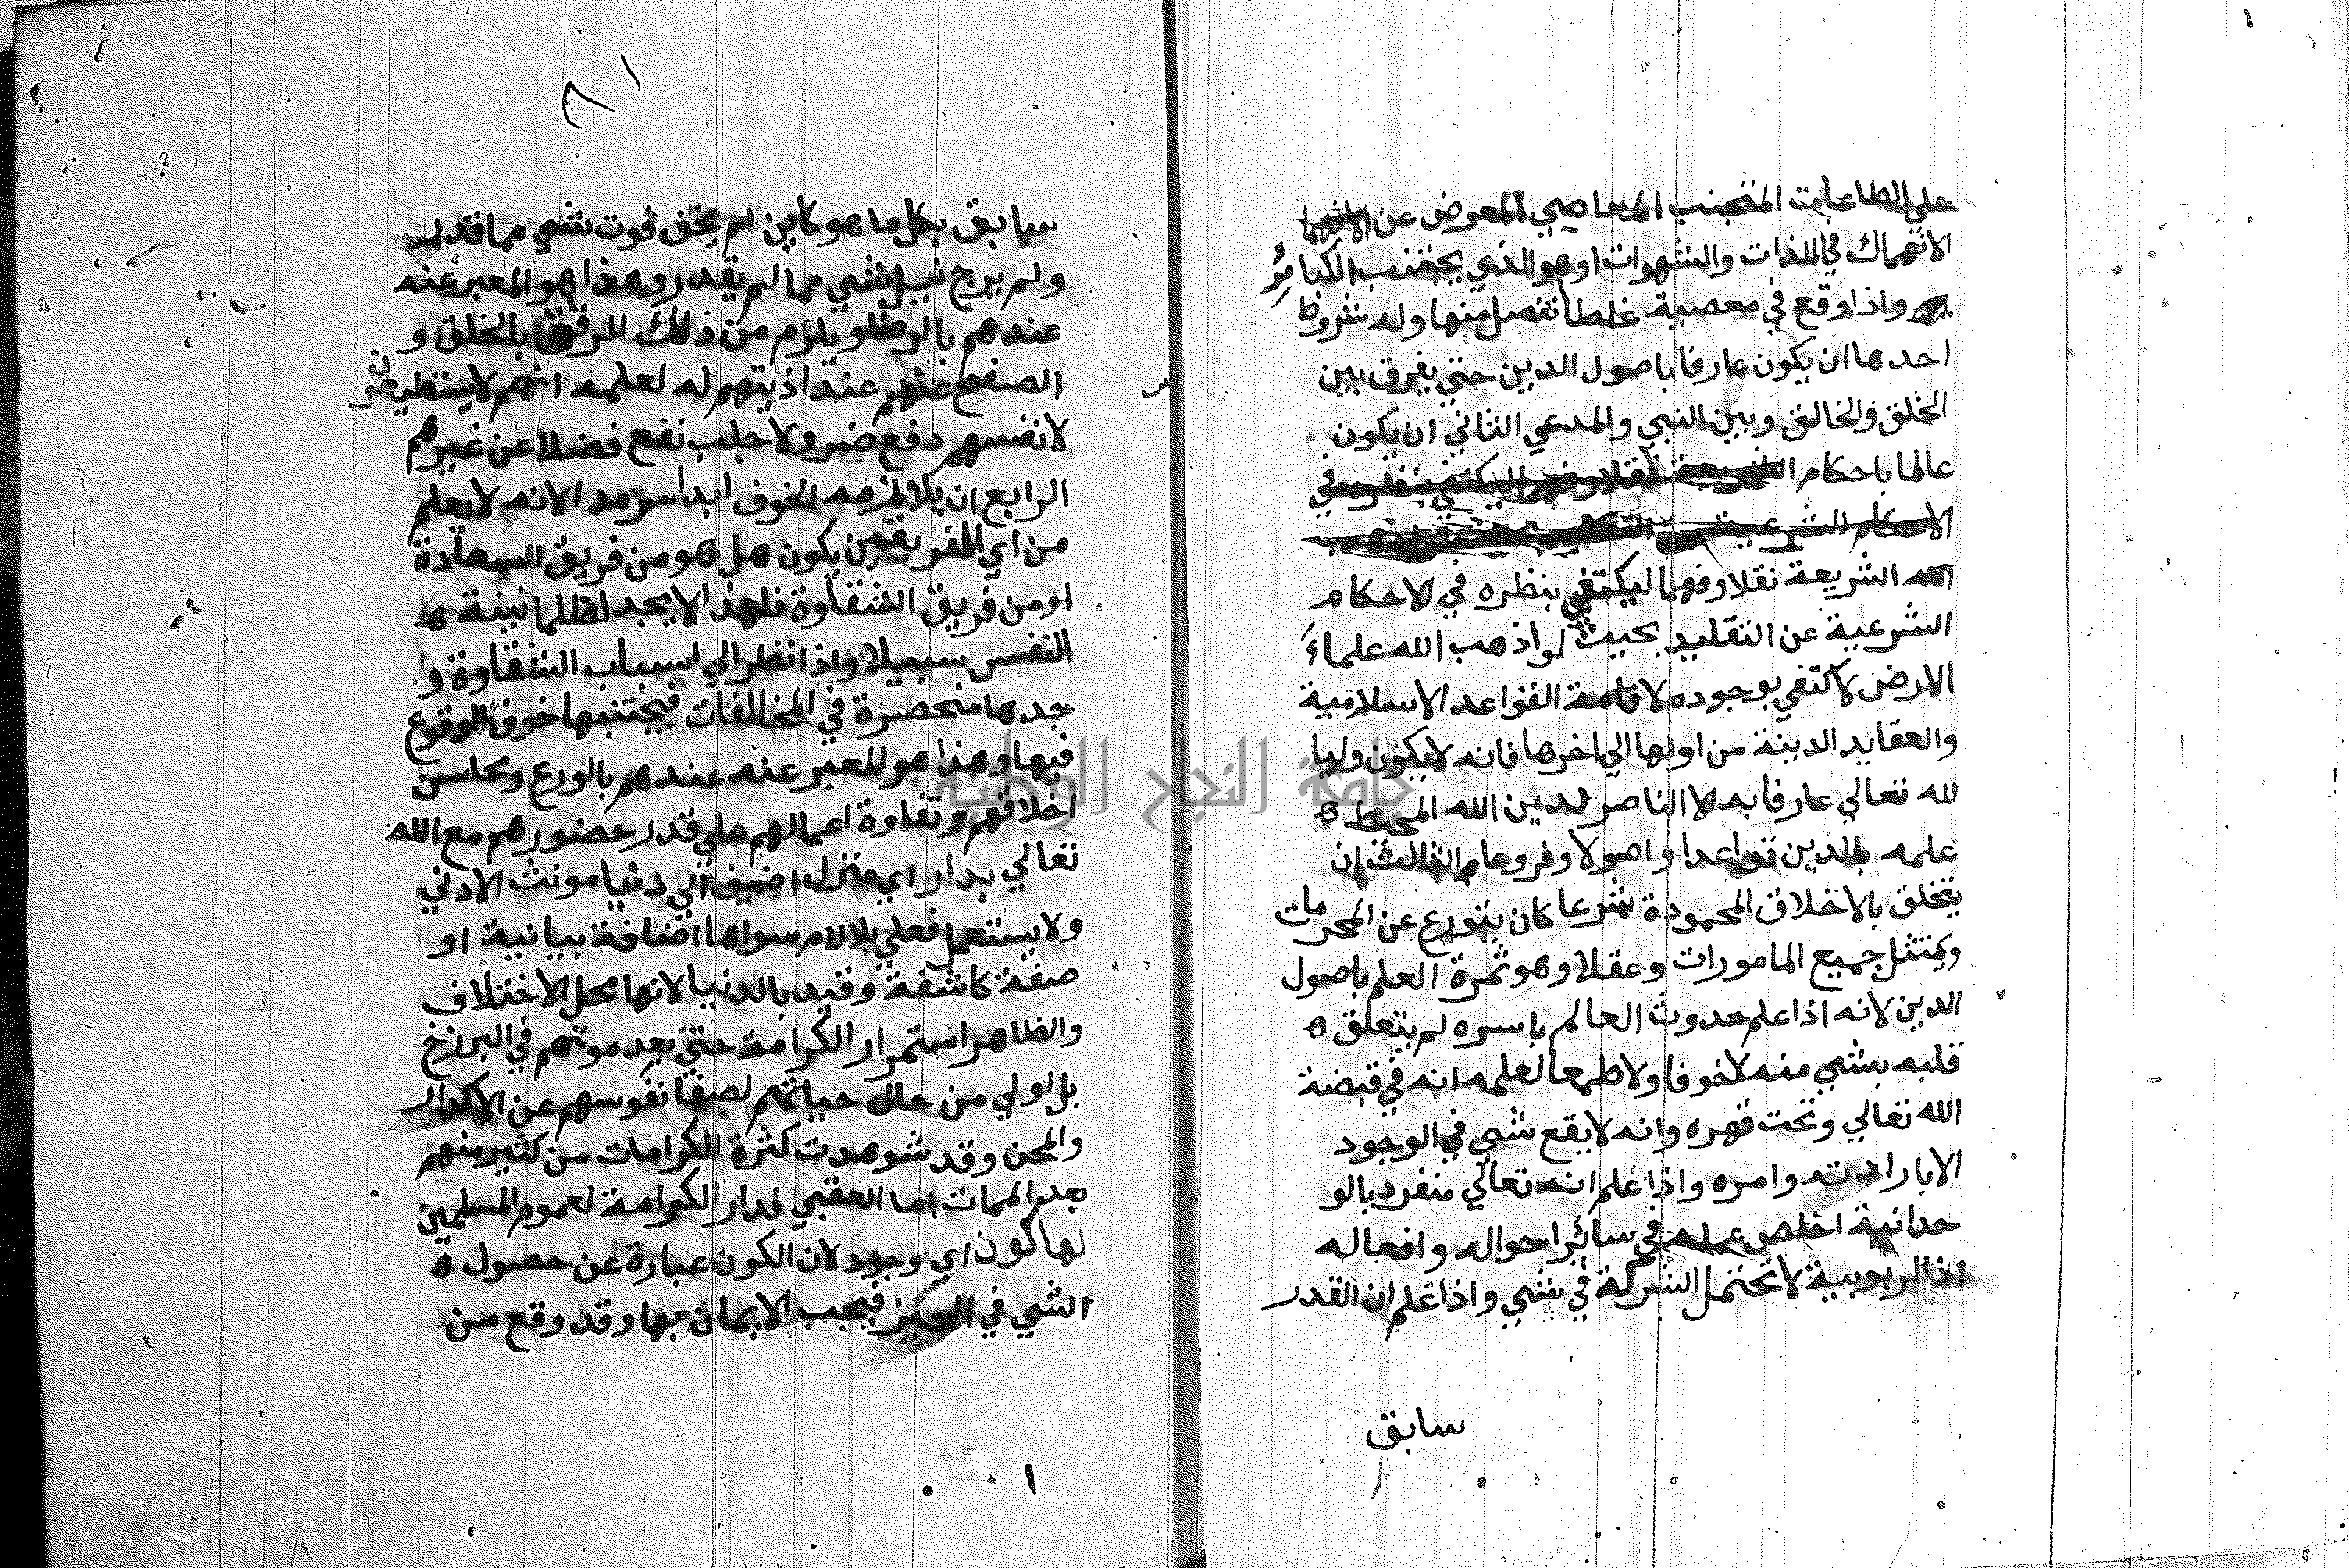 علي الطاعات المتجنب المعاصي المعرض عن
الانهماك في اللذات والشهوات اوهو الذي يجتنب الكبائر
واذا وقع في معصية غلطا تفصل منها وله شروط
احدها ان يكون عارفا باصول الدين حتي يفرق بين
الخلق والخالق وبين النبي والمدعي الثاني ان يكون
عالما باحكام
الشريعة نقلا وفهما ليكتفي بنظره في الاحكام
الشرعية عن التقليد بحيث لو اذهب الله علماء
الارض لاكتفي بوجوده لاقامة القواعد الاسلامية
والعقايد الدينة من اولها الي اخرها فانه لا يكون وليا
لله تعالي عارفا به الا الناصر لدين الله المحيط
علمه بالدين قواعدا واصولا وفروعا الثالث ان
يتخلق بالاخلاق المحمودة شرعا كان يتورع عن المحرمات
ويمتثل جميع المامورات وعقلا وهو ثمرة العلم باصول
الدين لانه اذا علم حدوث العالم باسره لم يتعلق
قلبه بشي منه لاخوفا ولا طمعا لعلمه انه في قبضة
الله تعالي وتحت قهره وانه لا يقع شي في الوجود
الا بارادته وامره واذا علم انه تعالي منفرد بالو
حدانية اخلص عمله في سائر احواله وافعاله
اذ الربوبية لا تحتمل الشركة في شي واذا علم ان القدر
سابق
جامعة النجاح الوطنية
٦١
سابق بكل ما هو كاين لم يخف فوت شي مما قدر له
ولم يرج نيل شي مما لم يقدر وهذا هو المعبر عنه
عندهم بالرضا ويلزم من ذلك الرفق بالخلق و
الصفح عنهم عند اذيتهم له لعلمه انهم لا يستطيعون
لانفسهم دفع ضر ولا جلب نفع فضلا عن غيرهم
الرابع ان يلازمه الخوف ابدا سرمدا لانه لا يعلم
من اي الفريقين يكون هل هو من فريق السعادة
او من فريق الشقاوة فلهذا لا يجد لظلمانينة
النفس سبيلا واذا نظر الي اسباب الشقاوة و
جدها منحصرة في المخالفات فيجتنبها خوف الوقوع
فيها وهذا هو المعبر عنه عندهم بالورع ومحاسن
اخلاقهم وتفاوة اعمالهم علي قدر حضورهم مع الله
تعالي بدار اي منزل اضيف الي دنيا مونث الادني
ولا يستعمل فعلي بلا لام سواها اضافة بيانية او
صفة كاشفة وقيد بالدنيا لانها محل الاختلاف
والظاهر استمرار الكرامة حتي بعد موتهم في البرزخ
بل اولي من حال حياتهم لصفا نفوسهم عن الاكدار
والمحن وقد شوهدت كثرة الكرامات من كثير منهم
بعد الممات اما العقبي فدار الكرامة لعموم المسلمين
لها كون اي وجود لان الكون عبارة عن حصول
الشي في الحيز فيجب الايمان بها وقد وقع من